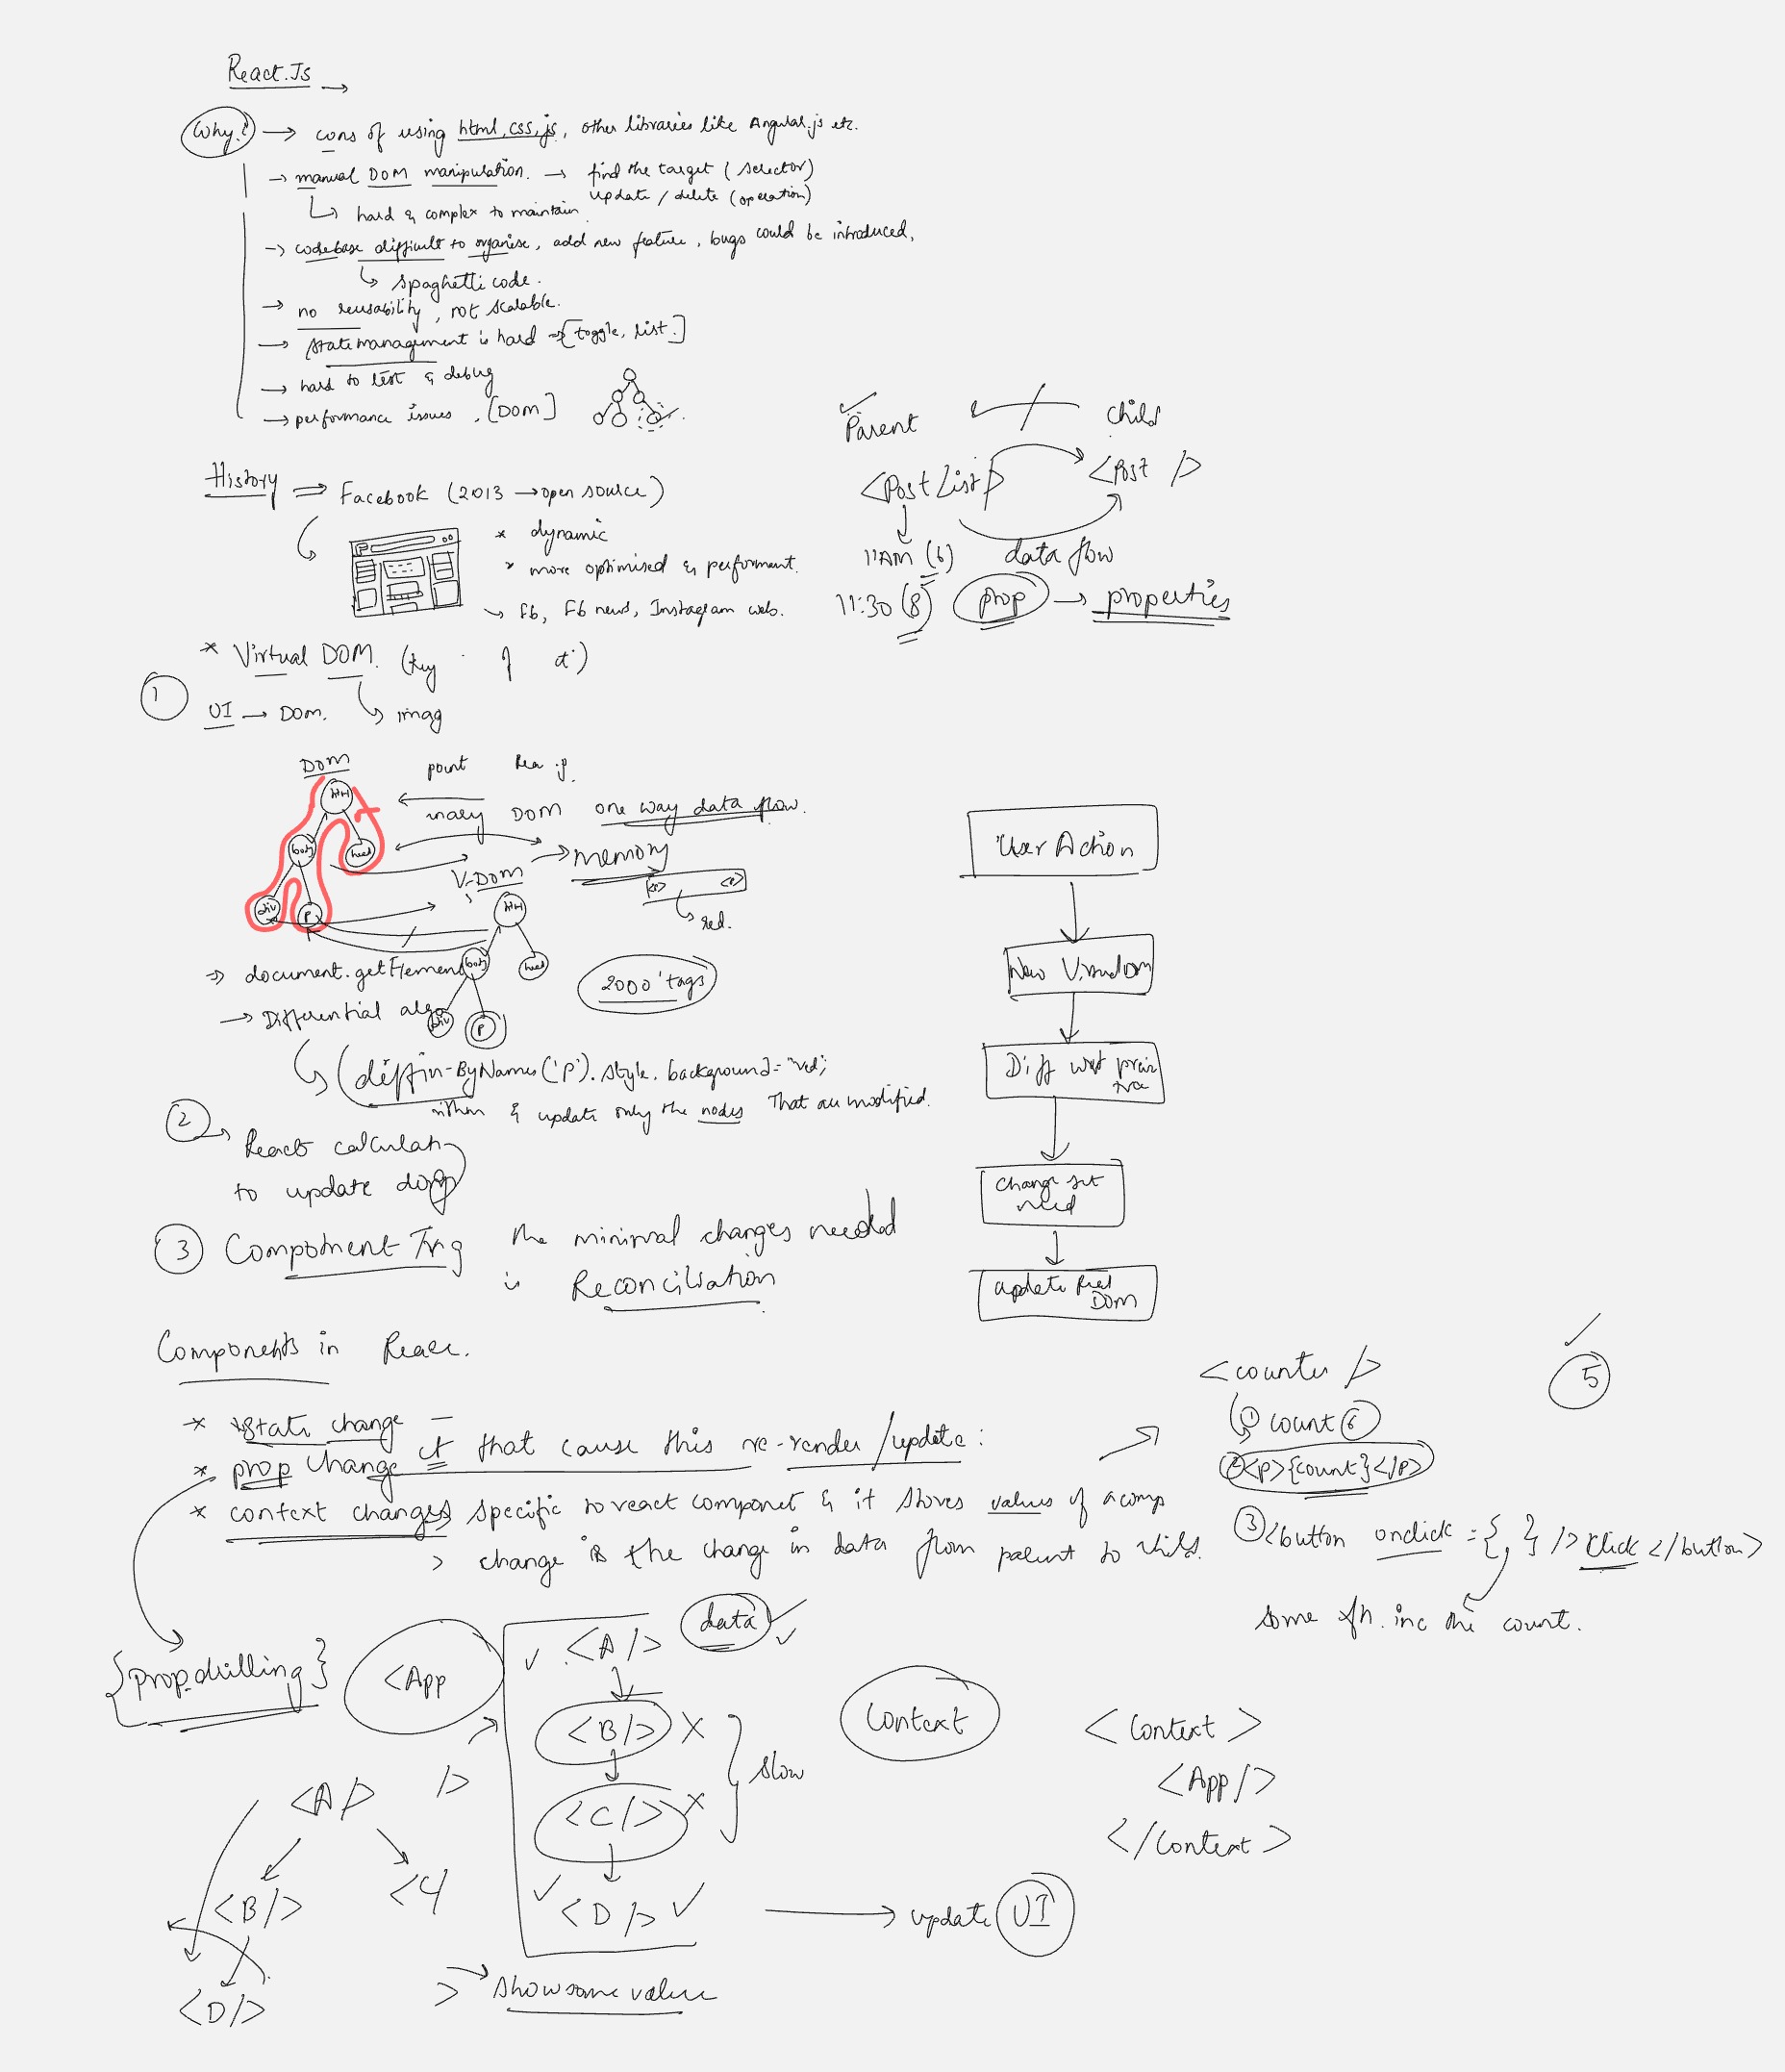 React.Js →
Why? → cons of using html, css, js, other libraries like Angular.js etc.
→ manual DOM manipulation. → find the target (selector)
update / delete (operation)
hard & complex to maintain
→ codebase difficult to organise, add new feature, bugs could be introduced,
spaghetti code.
→ no reusability, not scalable.
→ state management is hard → [toggle, list.]
→ hard to test & debug
→ performance issues. [DOM]
Parent
child
<PostList/>
<Post />
11AM (6)
data flow
11:30 (8)
prop → properties
History ⇒ Facebook (2013 → open source)
* dynamic
* more optimised & performent.
Fb, Fb news, Instagram web.
* Virtual DOM. (key
1
UI → DOM.
imag
DOM
html
body
head
div
p
point
inary DOM one way data flow.
→ memory
V-DOM
html
body
head
div
p
<p>
red.
2000 tags
→ document.getElement
→ Differential algo
(diffin-ByNames('p').style.background="red;
& update only the nodes that are modified.
2
React calculat
to update
3 Component
the minimal changes needed
is Reconciliation
User Action
New V.
Diff wrt
change set need
update Real DOM
Components in React.
* state change —
* prop change
that cause this re-render/update:
* context changes specific to react componet & it stores values of a comp
> change is the change in data from parent to child.
<counter />
5
1 count 6
2 <p>{count}</p>
3 <button onclick={, } /> click </button>
some fn. inc the count.
{prop drilling}
<App
/>
<A/>
<B/>
<D/>
<A/> data
<B/> X
<C/> X
slow
<D/>
→ update UI
> show some value
Context
<Context>
<App/>
</Context>